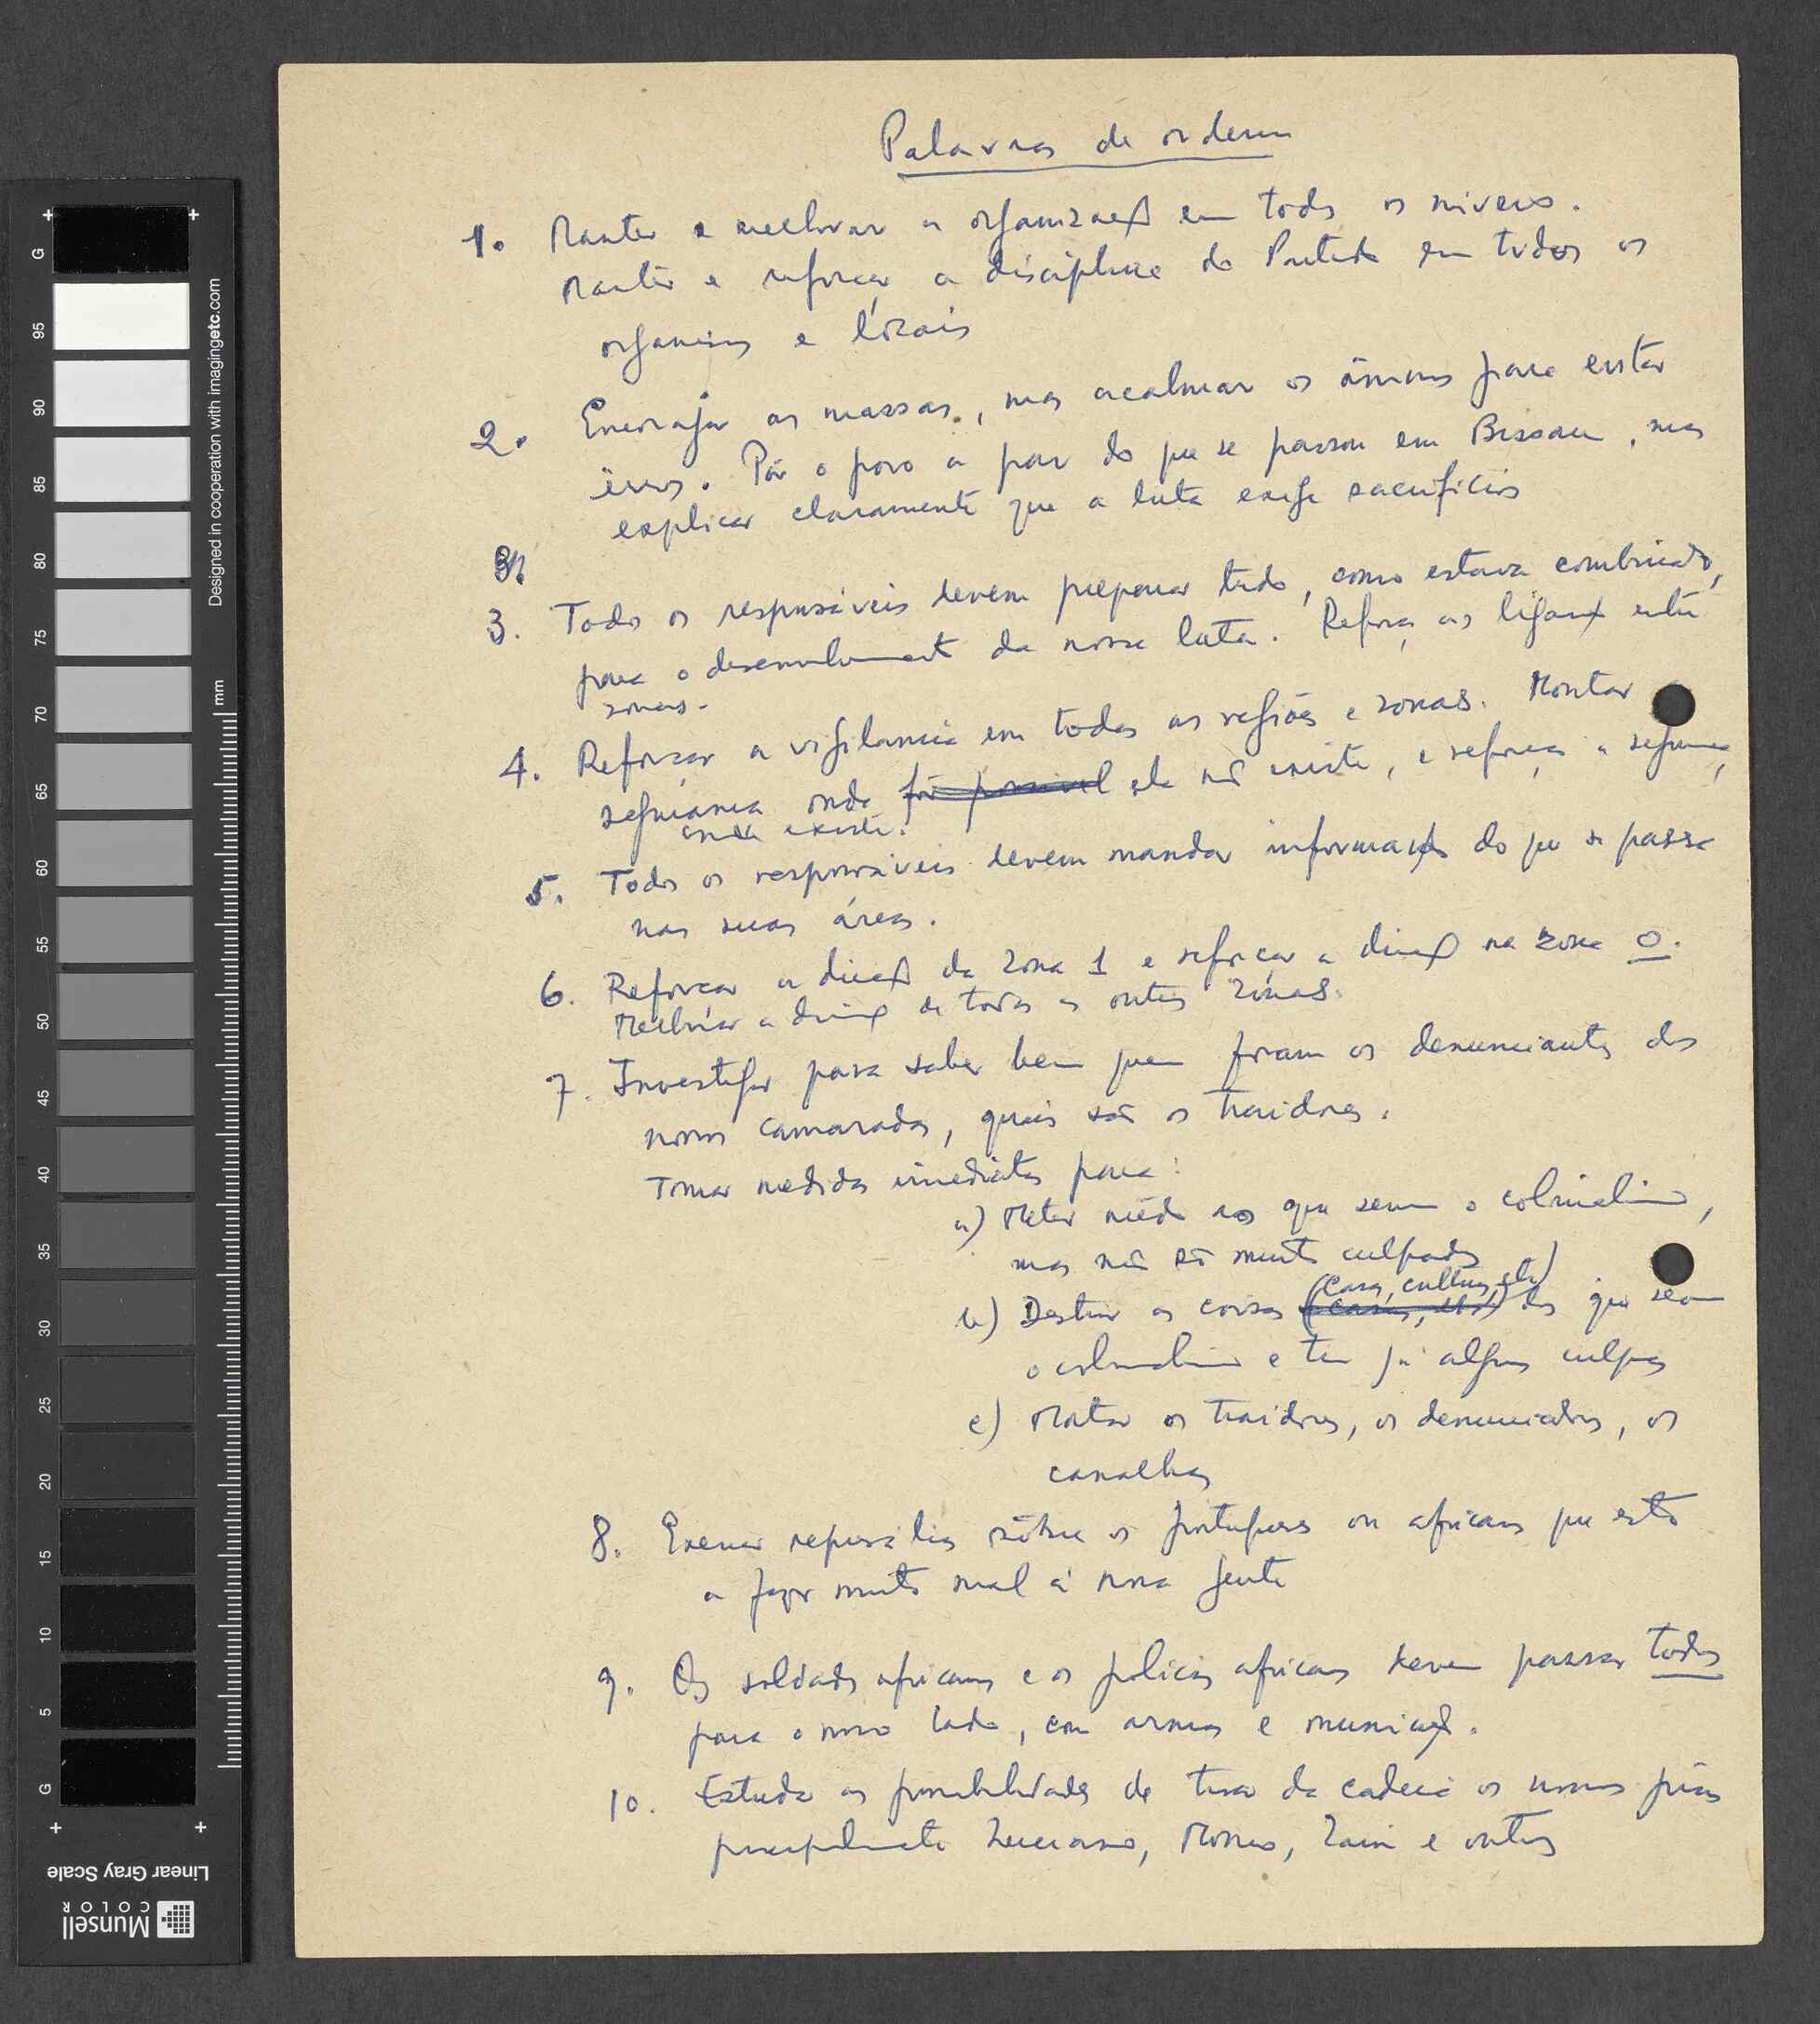 Palavras de ordem
1. Manter e melhorar a organização em todos os níveis.
Manter e reforçar a disciplina do Partido em todos os
organismos e locais
2. Encorajar as massas, mas acalmar os ânimos para evitar
êrros. Pôr o povo a par do que se passou em Bissau, mas
explicar claramente que a luta exige sacrifícios
3. Todos os responsáveis devem preparar tudo, como estava combinado,
para o desenvolvimento da nossa luta. Reforçar as ligações entre
zonas.
4. Reforçar a vigilancia em todas as regiões e zonas. Montar
segurança onde fôr possível ela não existe, e reforçar a segurança,
onde existe.
5. Todos os responsáveis devem mandar informações do que se passa
nas suas áreas.
6. Reforçar a direcção da zona 1 e reforçar a direcção na zona 0.
Melhorar a direcção de todas as outras zonas.
7. Investigar para saber bem quem foram os denunciantes dos
nossos camaradas, quais são os traidores.
Tomar medidas imediatas para:
a) Meter mêdo aos que servem o colonialismo,
mas não são muito culpados
(casas, culturas, etc)
b) Destruir as coisas (casas, etc) dos que servem
o colonialismo e têm já algumas culpas
c) Matar os traidores, os denunciadores, os
canalhas
8. Exercer represálias sôbre os portugueses ou africanos que estão
a fazer muito mal à nossa gente
9. Os soldados africanos e os polícias africanos devem passar todos
para o nosso lado, com armas e munições.
10. Estudar as possibilidades de tirar da cadeia os nossos presos
principalmente Momo, Zain e outros